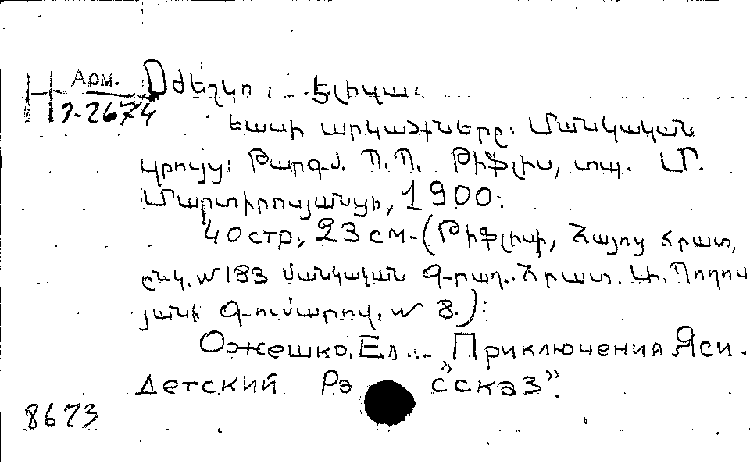 Арм.
Н 2-2674
Օժեշկո, Ելիզա.
Եասի արկածները: Մանկական
զրույց: Թարգմ. Պ.Պ. Թիֆլիս, տպ. Մ.
Մարտիրոսյանցի, 1900:
40 стр, 23 см. (Թիֆլիսի, Հայոց հրատ,
ընկ. № 183 Մանկական Գրադ. Հրատ.
յանի № 8.):
Ожешко, Ел... „Приключения Яси.
Детский Рассказ”.
8673